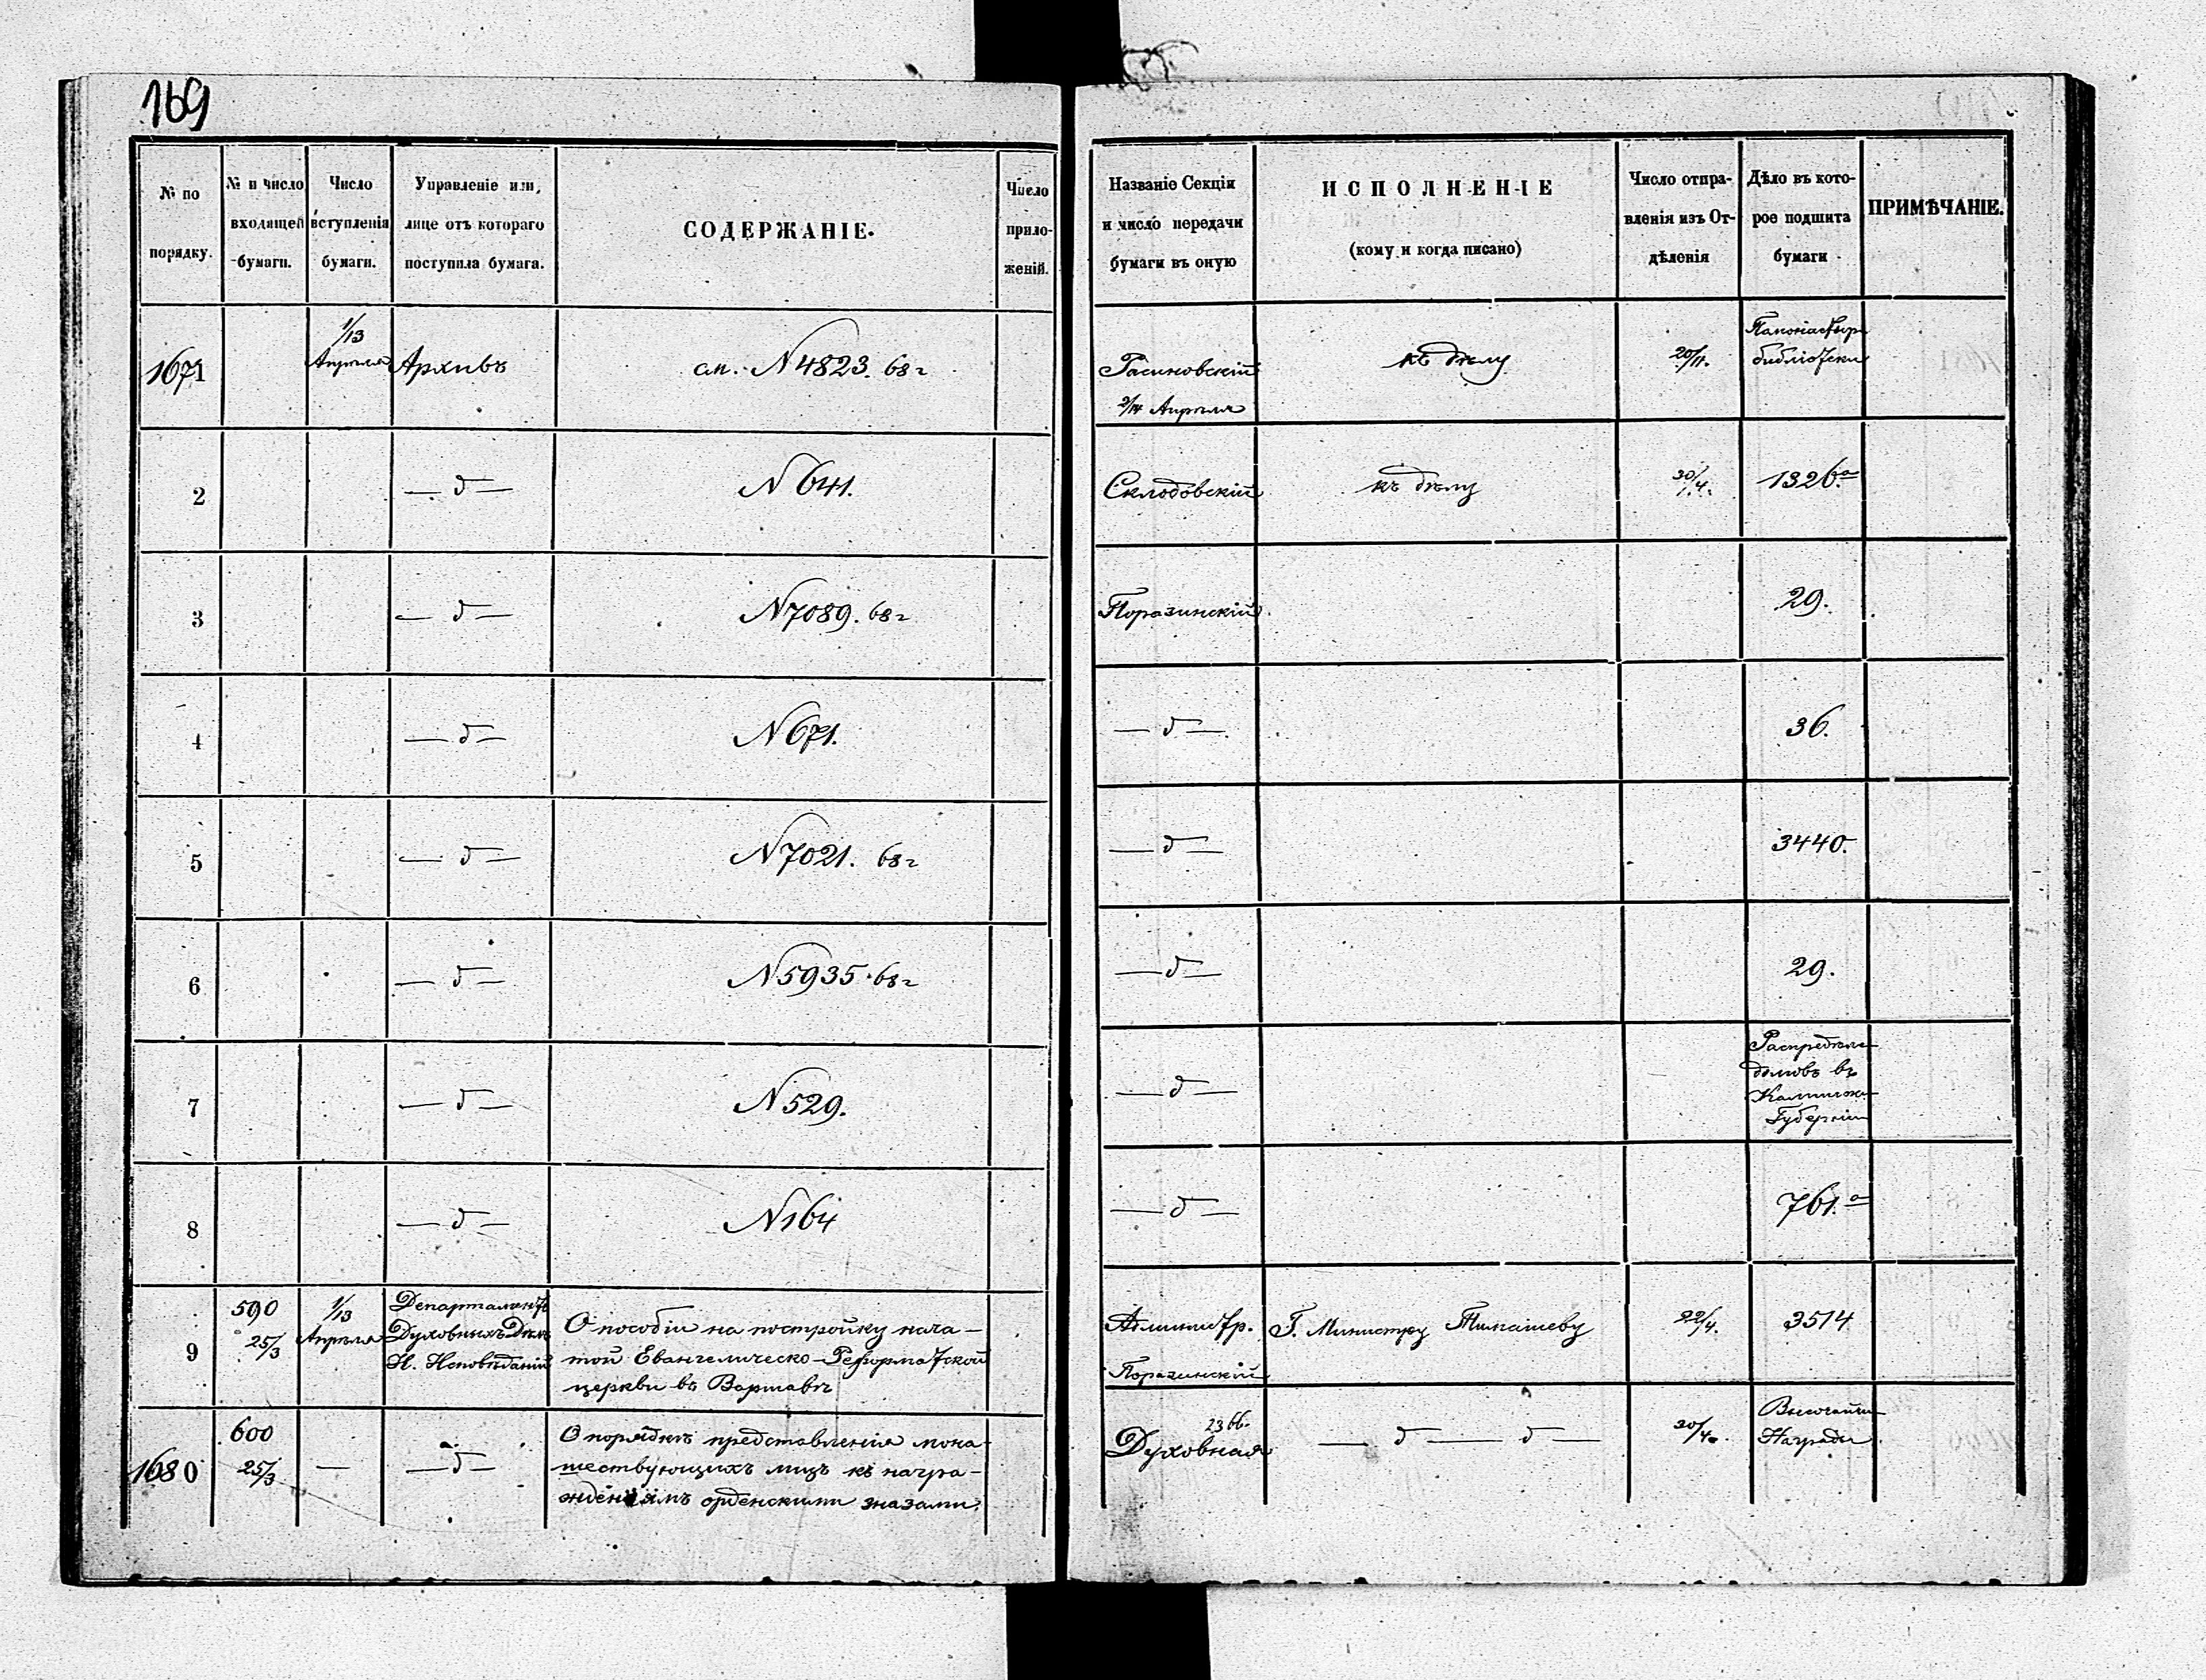 169
№ по порядку.
№ и число входящей бумаги.
Число вступленія бумаги.
Управленіе или, лице отъ котораго поступила бумага.
СОДЕРЖАНІЕ.
Число приложеній.
Названіе Секціи и число передачи бумаги въ оную
ИСПОЛНЕНІЕ
(кому и когда писано)
Число отправленія изъ Отдѣленія
Дѣло въ которое подшита бумаги
ПРИМѢЧАНІЕ.
1671 1/13 Апрѣля Архивъ см. N 4823. 68 г къ дѣлу 20/4.
2/14 Апрѣля
библіотеки
2 — д — N 641. Склодовскій къ дѣлу 30/4. 1326.а
3 — д — N 7089. 68 г Поразинскій 29.
4 — д — N 671. — д — 36.
5 — д — N 7021. 68 г — д — 3440.
6 — д — N 5935. 68 г — д — 29.
7 — д — N 529. — д —
домовъ въ
Губерніи
8 — д — N 164 — д — 761.а
9 590 25/3 1/13 Апрѣля
Департаментъ
Духовныхъ Дѣлъ
И. Исповѣданій
О пособіи на постройку нача-
той Евангелическо-Реформатской
церкви въ Варшавѣ
Поразинскій
Г. Министру Тимашеву 22/4. 3514
1680 600 25/3 — — д —
О порядкѣ представленія мона-
шествующихъ лицъ къ награ-
жденіямъ орденскими знаками.
Духовная
— д — д — 30/4.
Награды